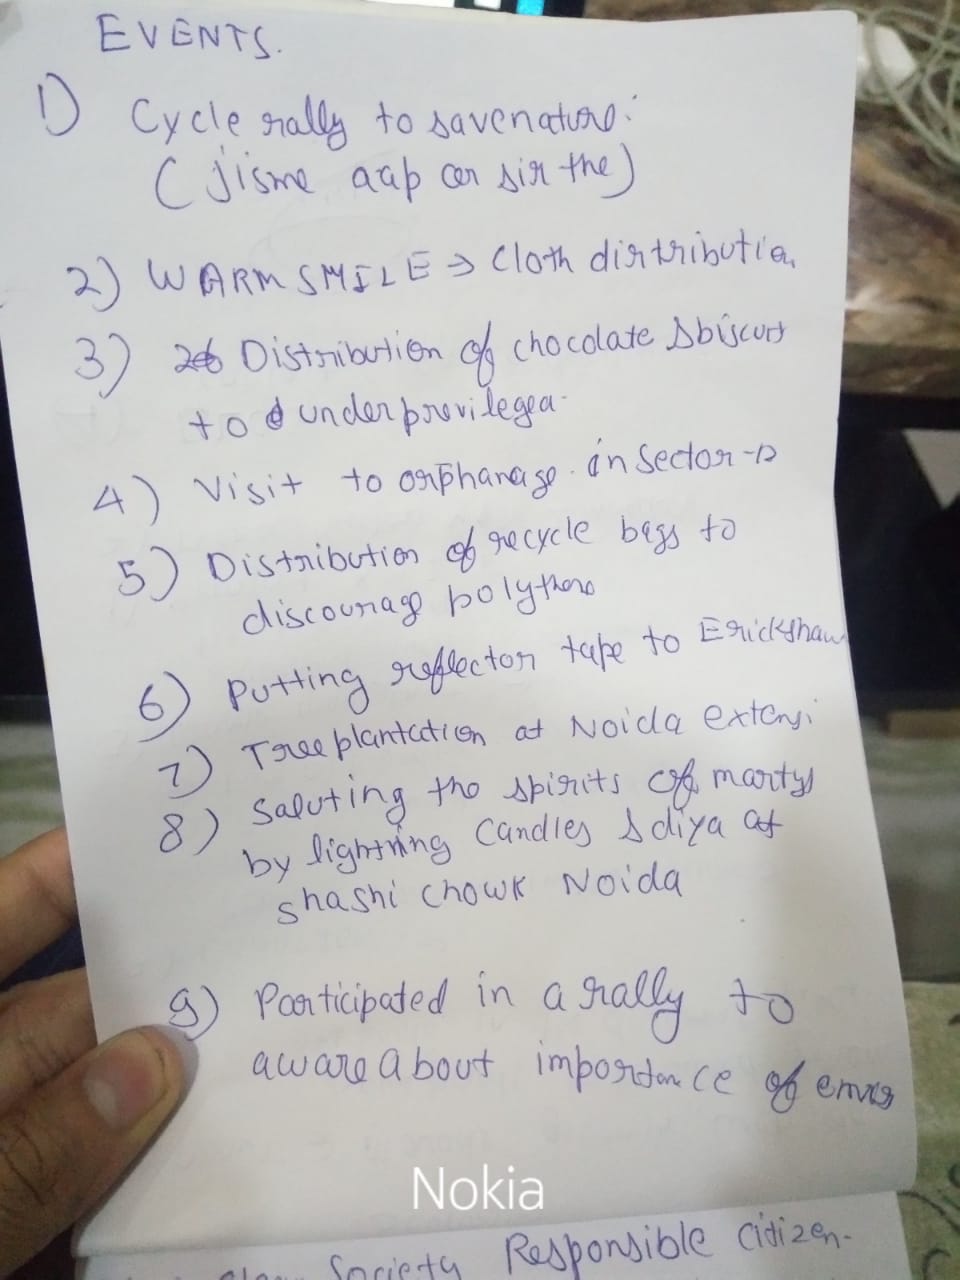 EVENTS.
1) Cycle rally to savenature:
(jisme aap or sir the)
2) WARM SMILE → Cloth distributio
3) Distribution of chocolate & biscuit
to underprevilegea-
4) Visit to orphanage. in Sector-12
5) Distribution of recycle bags to
discourage polythene
6) Putting reflector tape to Erickshaw
7) Tree plantation at Noida extensi
8) Saluting the spirits of martys
by lightning Candles & diya at
shashi chowk Noida
9) Participated in a rally to
aware about importance of
Nokia
Society Responsible Citizen-